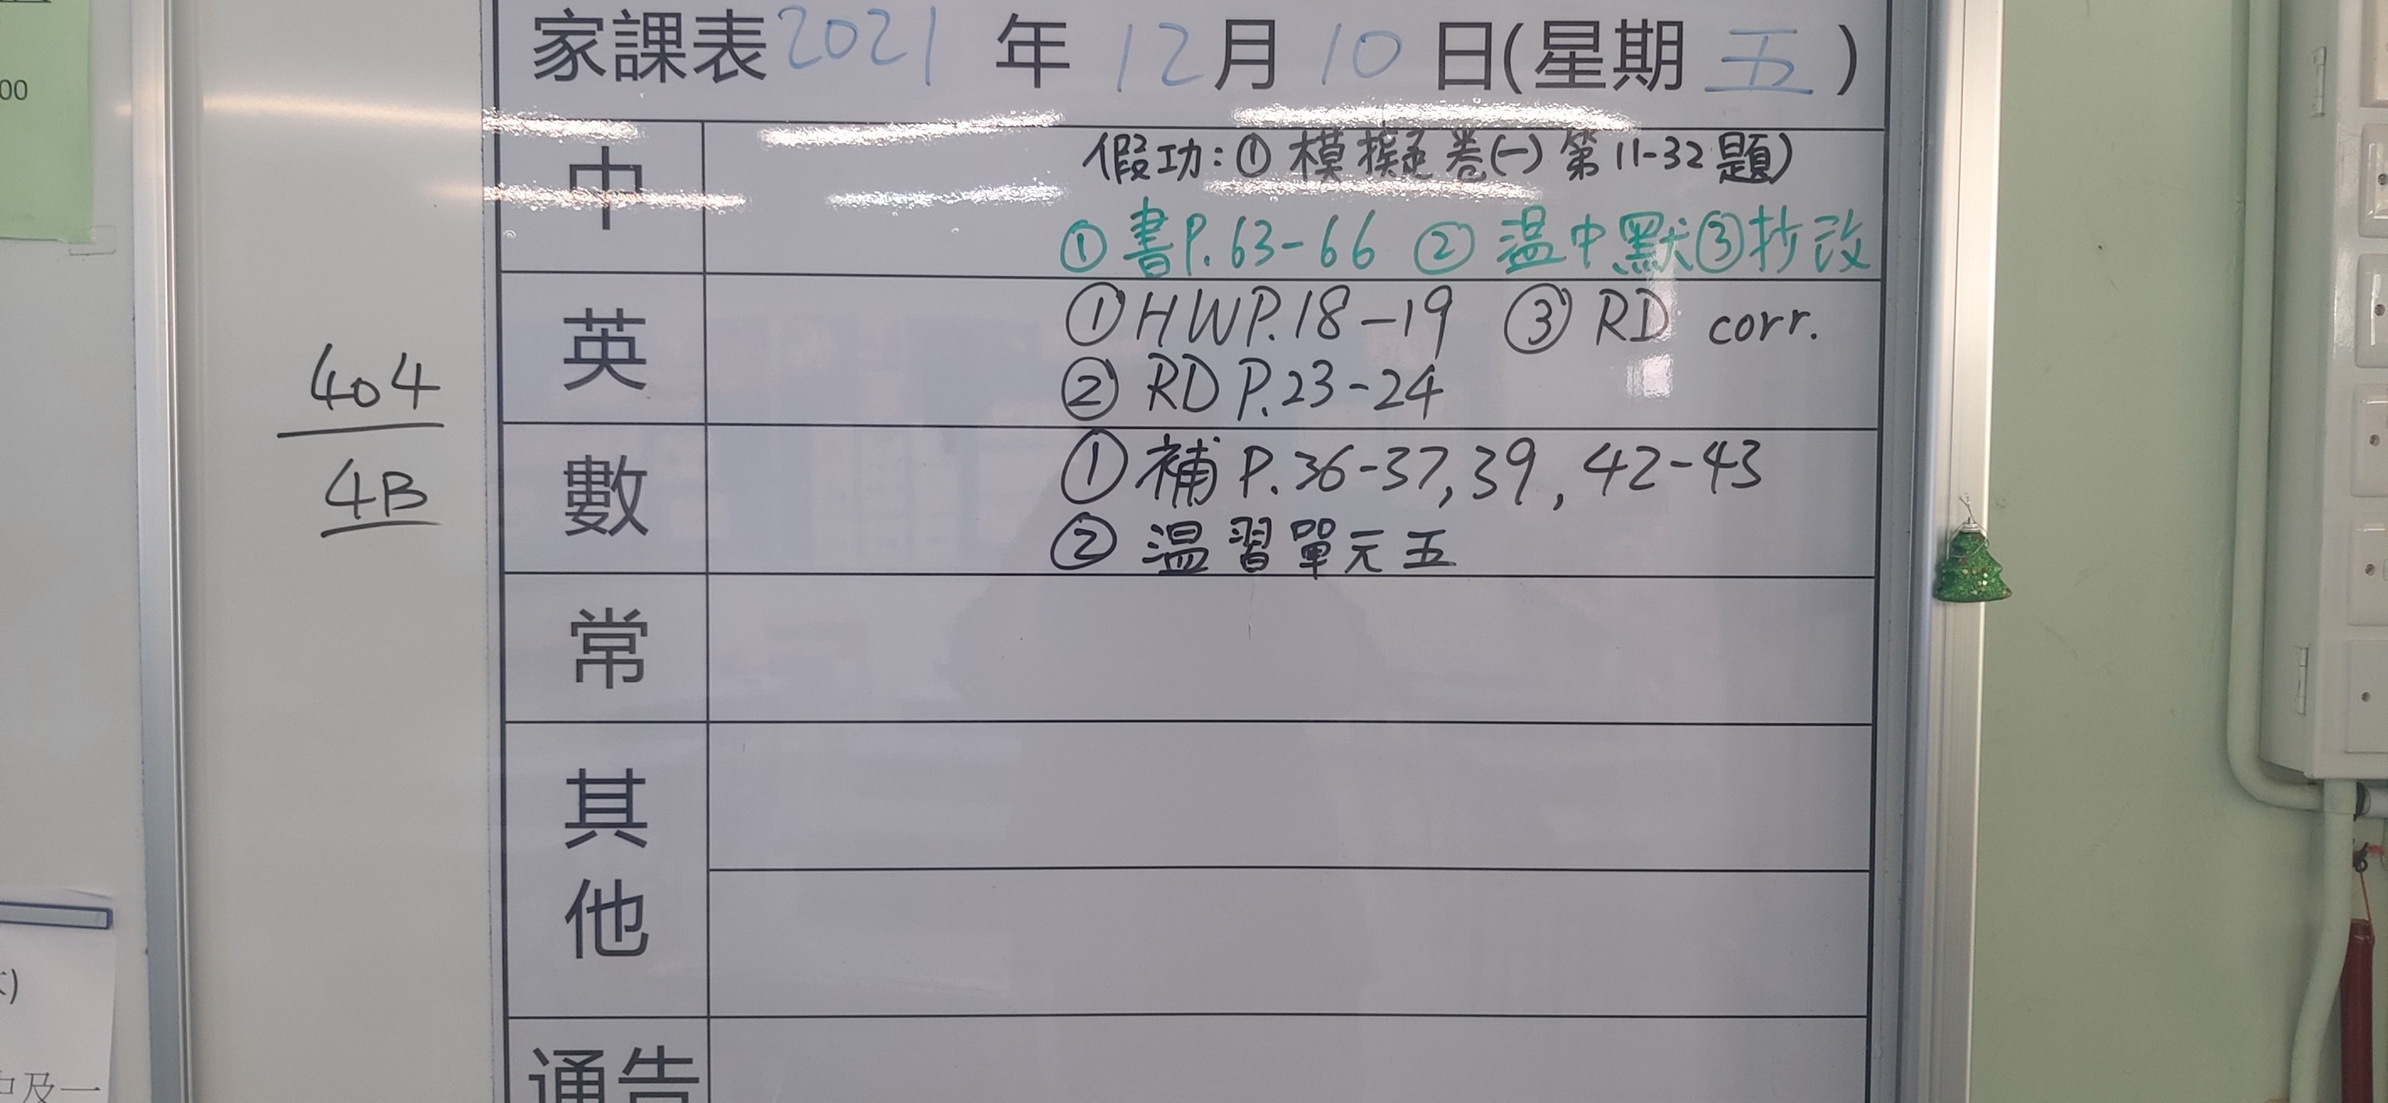 00
家課表 2021 年 12 月 10 日(星期 五 )
中
假功:① 模擬卷(一) 第11-32題)
① 書P.63-66 ② 溫中默 ③抄改
英
① HWP.18-19 ③ RD corr.
② RD P.23-24
404
4B
數
① 補 P.36-37, 39, 42-43
② 溫習單元五
常
其他
通告
及一